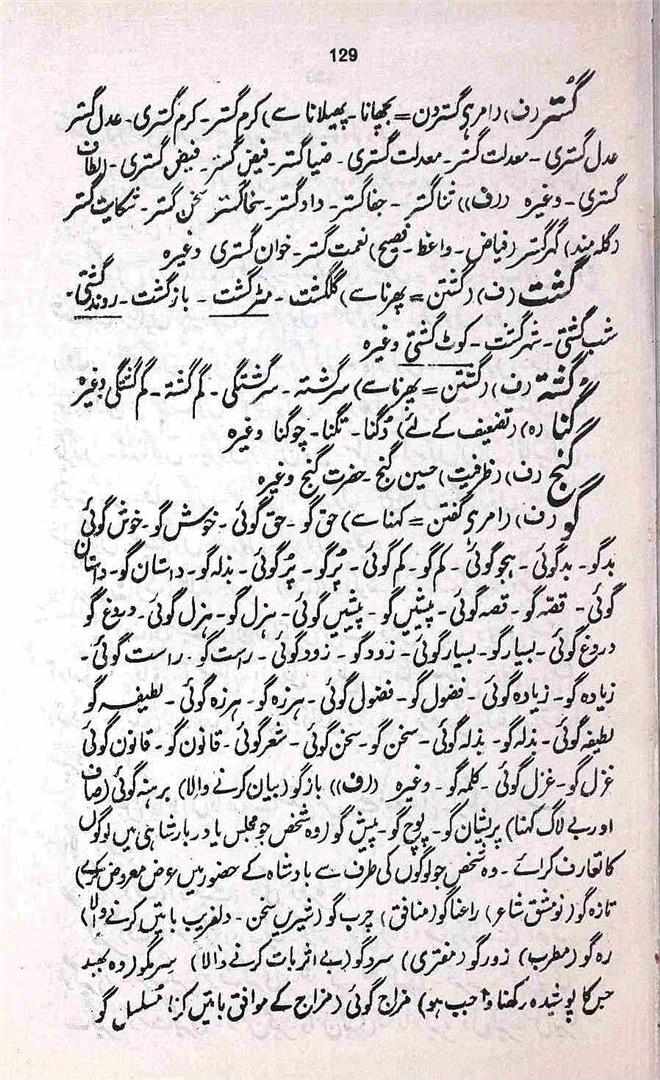 129
گستر (ف) (امر ہے گستردن = بچھانا۔ پھیلانا سے) کرم گستر۔ کرم گستری۔ عدل گستر
عدل گستری۔ معدلت گستر۔ معدلت گستری۔ ضیا گستر۔ فیض گستر۔ فیض گستری۔ الطاف
گستری۔ وغیرہ (ف)) ثنا گستر۔ جفا گستر۔ داد گستر۔ سخا گستر۔ سخن گستر۔ شکایت گستر
(گلہ مند) گہر گستر (فیاض۔ واعظ۔ فصیح) نعمت گستر۔ خوان گستری وغیرہ
گشت (ف) (گشتن = پھرنا سے) گلگشت۔ مٹر گشت۔ باز گشت۔ روند گشتی۔
شب گشتی۔ شہر گشت۔ کوٹ گشتی وغیرہ
گشتہ (ف) (گشتن = پھرنا سے) سرگشتہ۔ سرگشتگی۔ گم گشتہ۔ گم گشتگی وغیرہ
گنا (ہ) (تضعیف کے لئے) دُگنا۔ تگنا۔ چوگنا وغیرہ
گنج (ف) (ظرفیت) حسین گنج۔ حضرت گنج وغیرہ
گو (ف) (امر ہے گفتن = کہنا سے) حق گو۔ حق گوئی۔ خوش گو۔ خوش گوئی
بد گو۔ بد گوئی۔ ہجو گوئی۔ کم گو۔ کم گوئی۔ پُر گو۔ پُر گوئی۔ بذلہ گو۔ داستان گو۔ داستان
گوئی۔ قصّہ گو۔ قصہ گوئی۔ پیشیں گو۔ پیشیں گوئی۔ ہزل گو۔ ہزل گوئی۔ دروغ گو
دروغ گوئی۔ بسیار گو۔ بسیار گوئی۔ زود گو۔ زود گوئی۔ راست گو۔ راست گوئی۔
زیادہ گو۔ زیادہ گوئی۔ فضول گو۔ فضول گوئی۔ ہرزہ گو۔ ہرزہ گوئی۔ لطیفہ گو
لطیفہ گوئی۔ بذلہ گو۔ بذلہ گوئی۔ سخن گو۔ سخن گوئی۔ شعر گوئی۔ قانون گو۔ قانون گوئی
غزل گو۔ غزل گوئی۔ کلمہ گو۔ وغیرہ (ف)) باز گو (بیان کرنے والا) برہنہ گوئی (صاف
اور بے لاگ کہنا) پریشان گو۔ پوچ گو۔ پیش گو (وہ شخص جو مجلس یا دربار شاہی میں لوگوں
کا تعارف کرائے۔ وہ شخص جو لوگوں کی طرف سے بادشاہ کے حضور میں عرض معروض کرے)
تازہ گو (نو مشق شاعر) راعنا گو (منافق) چرب گو (شیریں سخن۔ دلفریب باتیں کرنے والا)
رہ گو (مطرب) زور گو (مفتری) سرد گو (بے اثر بات کرنے والا) سِر گو (وہ بھید
جس کا پوشیدہ رکھنا واجب ہو) مزاج گوئی (مزاج کے موافق باتیں کرنا) مُسلسل گو